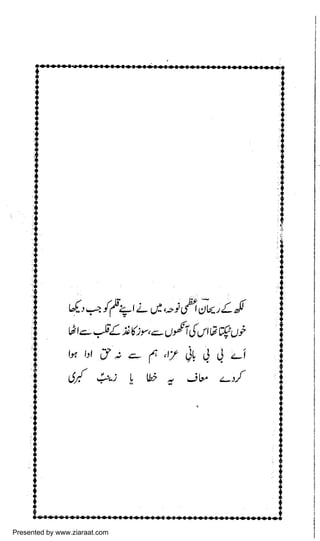 لکھ کے ریحان اعظمی نوحہ، میں نے اپنے قلم کو جب دیکھا
خوں ٹپکتا تھا اس کی آنکھوں سے، سوز کاغذ کے قلب سے اٹھا
اے بی بی بانیِ عزا، ہم سے نہ حق ادا ہوا
کردے معاف یہ خطا یا زینبِ کبریٰ
Presented by www.ziaraat.com